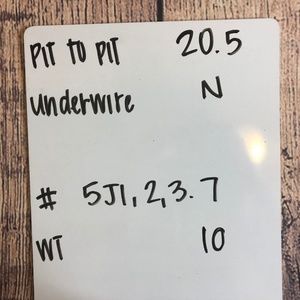 PIT TO PIT 20.5
underwire N
# 5J1,2,3.7
WT 10